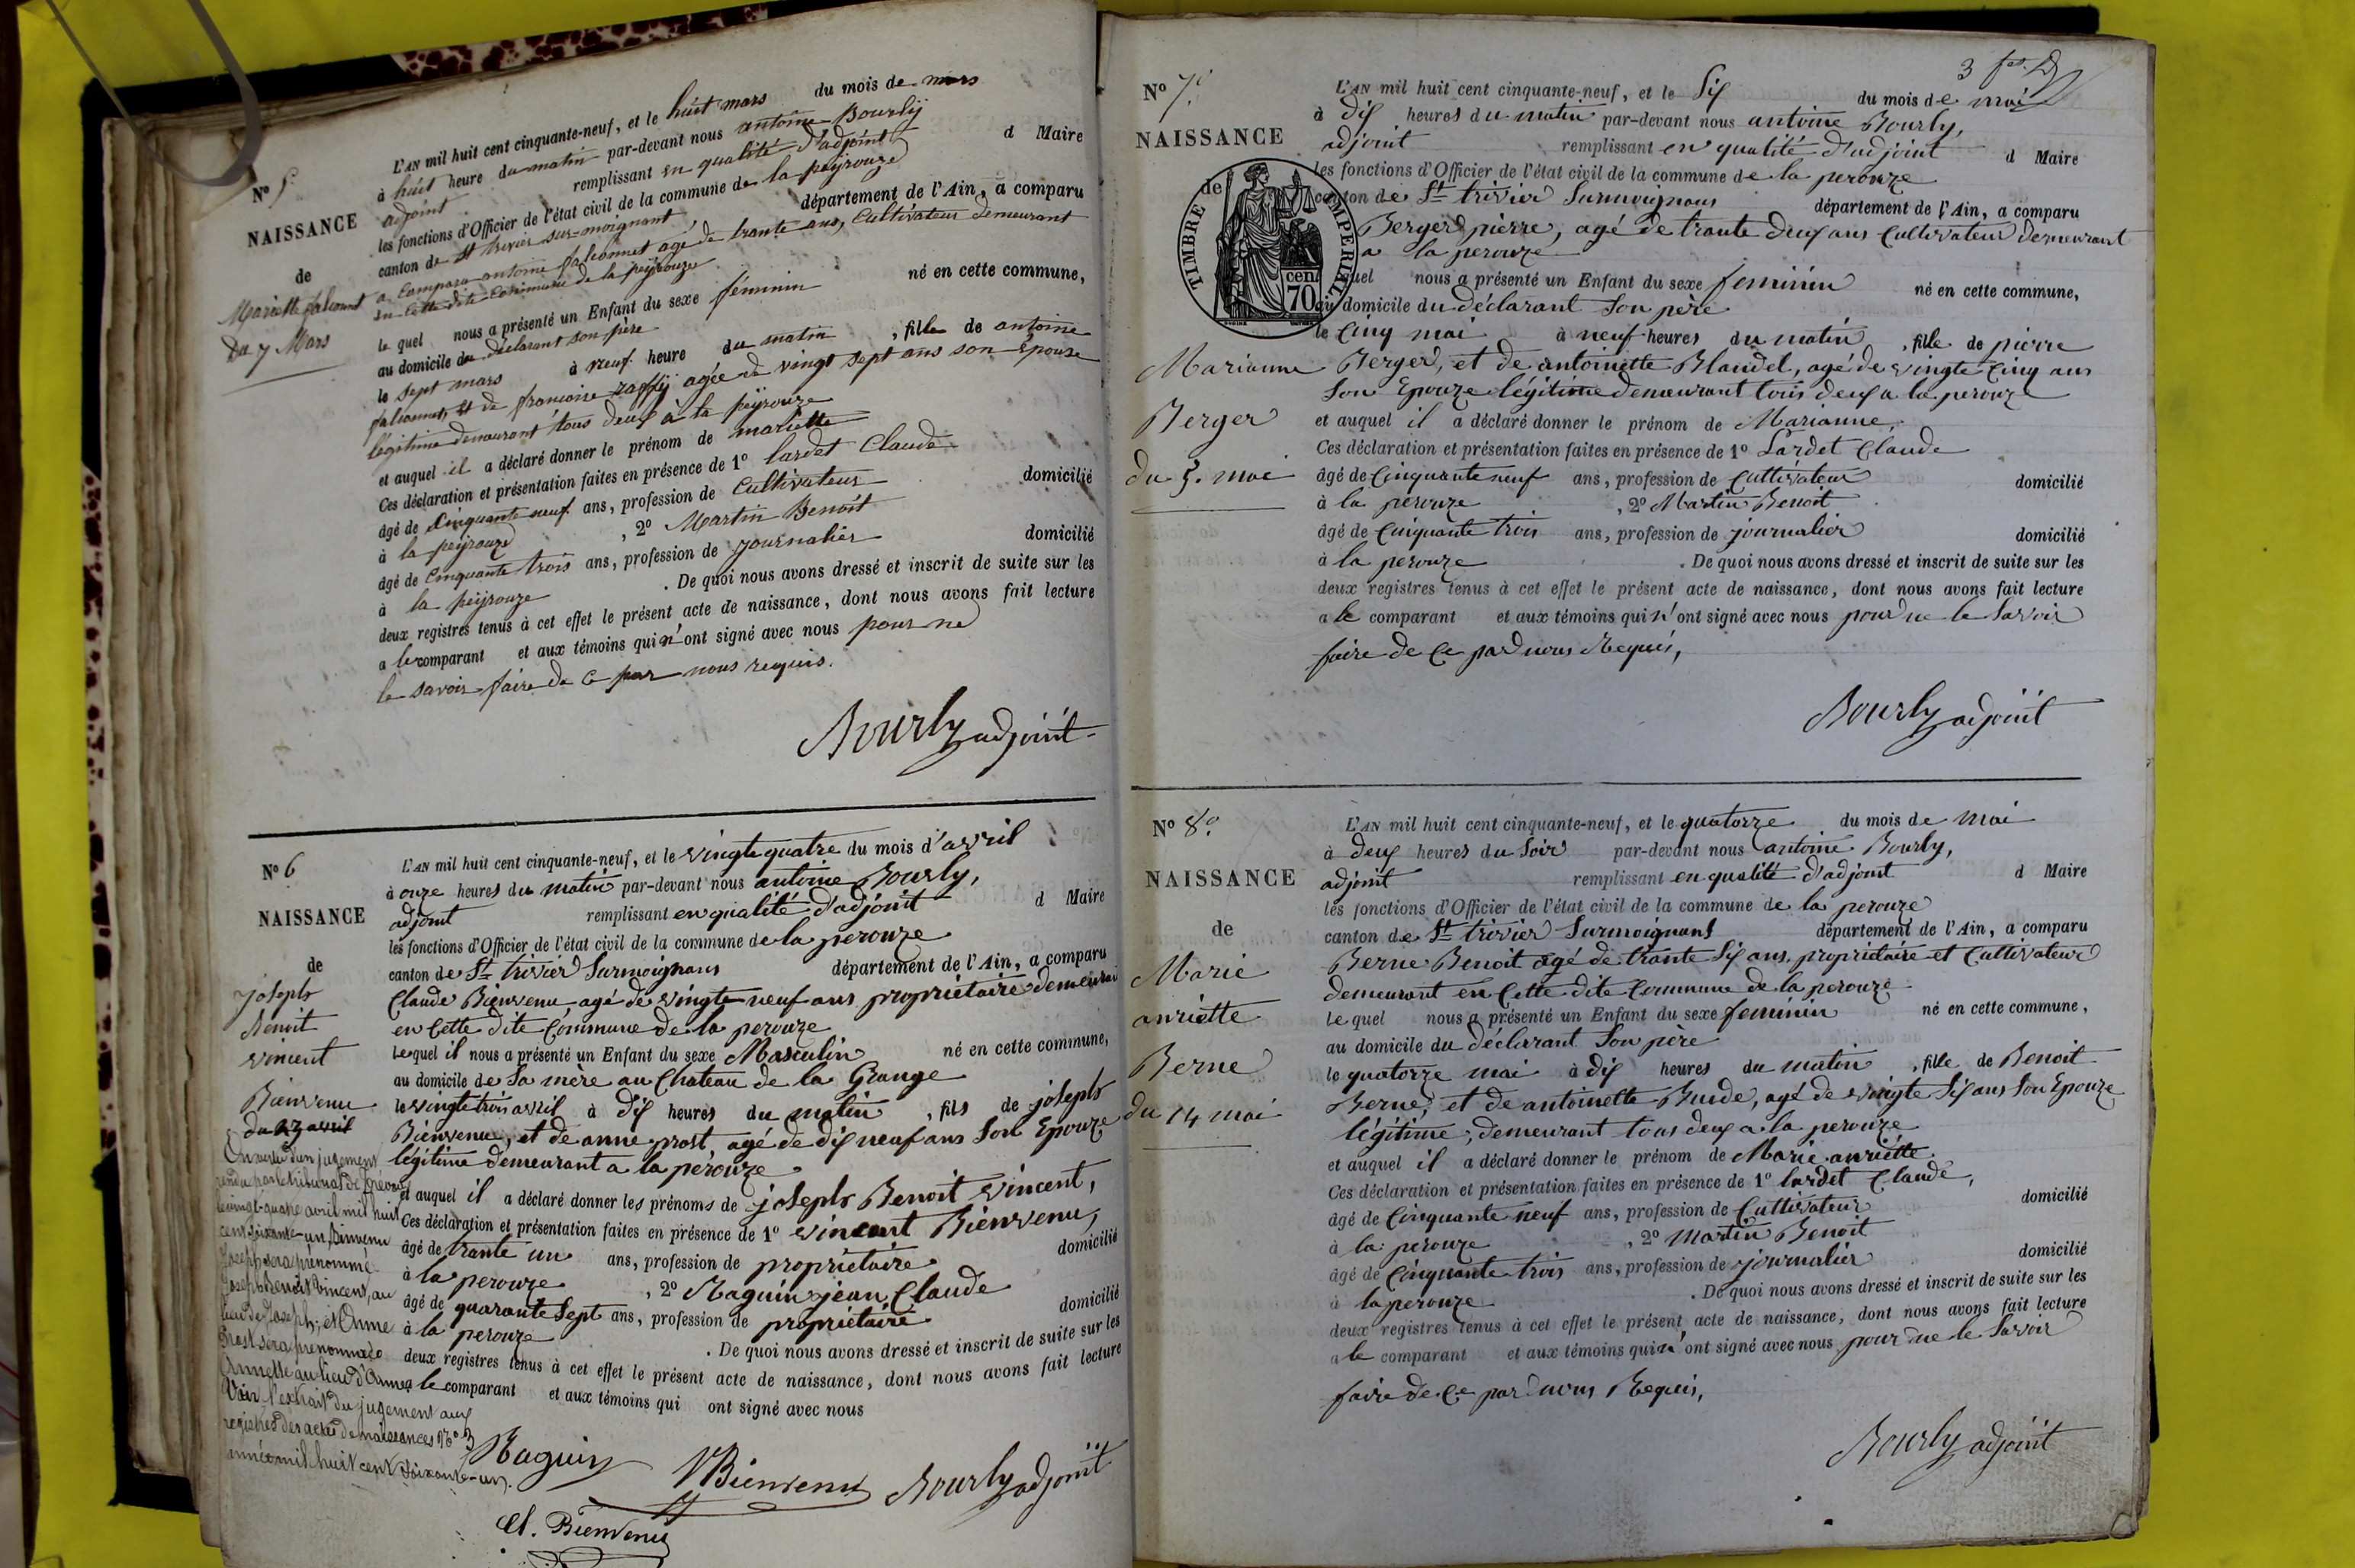 N° 5
NAISSANCE
de
Mariette falconnet
Du 7 Mars
L'AN mil huit cent cinquante-neuf, et le huit mars du mois de mars
à huit heure du matin par-devant nous antoine Bourlÿ
adjoint remplissant en qualité d'adjoint d Maire
les fonctions d'Officier de l'état civil de la commune de la peÿrouze
canton de St trivier sur-moignant département de l'Ain, a comparu
a comparu antoine falconnet agé de trante ans, Cultivateur demeurant
en cette dite commune de la peÿrouze
le quel nous a présenté un Enfant du sexe féminin né en cette commune,
au domicile du déclarant son père
le sept mars à neuf heure du matin , fille de antoine
falconnet, et de francoise raffÿ agée de vingt sept ans son Épouse
légitime demeurant tous deux à la peÿrouze
et auquel il a déclaré donner le prénom de mariette
Ces déclaration et présentation faites en présence de 1° lardet Claude
âgé de Cinquante neuf ans, profession de Cultivateur domicilié
à la peÿrouze , 2° Martin Benoit
âgé de Cinquante trois ans, profession de journalier domicilié
à la peÿrouze . De quoi nous avons dressé et inscrit de suite sur les
deux registres tenus à cet effet le présent acte de naissance, dont nous avons fait lecture
a le comparant et aux témoins qui n'ont signé avec nous pour ne
le savoir faire de ce par nous requis.
Bourly adjoint
N° 6
NAISSANCE
de
joseph
Benoit
vincent
Bienvenu
du 23 avril
En vertu d'un jugement
rendu par le tribunal de Trévoux
le vingt-quatre avril mil huit
cent soixante-un, Bienvenu
Joseph sera prénommé
Joseph Benoit Vincent, au
lieu de Joseph; et Anne
Prost sera prénommée
Annette au lieu d'Anne
Voir l'extrait du jugement aux
registres des actes de naissances N° 3
année mil huit cent soixante-un.
L'AN mil huit cent cinquante-neuf, et le vingte quatre du mois d'avril
à onze heures du matin par-devant nous antoine Bourly,
adjoint remplissant en qualité d'adjoint d Maire
les fonctions d'Officier de l'état civil de la commune de la perouze
canton de St trivier Surmoignans département de l'Ain, a comparu
Claude Bienvenu agé de vingte neuf ans propriétaire demeurant
en Cette dite Commune de la perouze
Lequel il nous a présenté un Enfant du sexe Masculin né en cette commune,
au domicile de Sa mère au Chateau de la Grange
le vingte trois avril à dix heures du matin , fils de joseph
Bienvenu, et de anne prost, agé de dix neuf ans Son Epouze
légitime demeurant a la perouze
et auquel il a déclaré donner les prénoms de joseph Benoit vincent,
Ces déclaration et présentation faites en présence de 1° vincent Bienvenu,
âgé de trante un ans, profession de propriétaire domicilié
à la perouze , 2° Raguin jean Claude
âgé de quarante Sept ans, profession de propriétaire domicilié
à la perouze . De quoi nous avons dressé et inscrit de suite sur les
deux registres tenus à cet effet le présent acte de naissance, dont nous avons fait lecture
a le comparant et aux témoins qui ont signé avec nous
Raguin VBienvenu Bourly adjoint
Cl. Bienvenu
3
N° 7°
NAISSANCE
TIMBRE IMPERIAL
70 cen
de
Marianne
Berger
du 5. mai
L'AN mil huit cent cinquante-neuf, et le Six du mois de mai
à Dix heures du matin par-devant nous antoine Bourly,
adjoint remplissant en qualité d'adjoint d Maire
les fonctions d'Officier de l'état civil de la commune de la perouze
canton de St trivier Surmoignans département de l'Ain, a comparu
Berger pierre, agé de trante deux ans Cultivateur Demeurant
a la perouze
quel nous a présenté un Enfant du sexe feminin né en cette commune,
au domicile du déclarant Son père
le Cinq mai à neuf heures du matin , fille de pierre
Berger, et de antoinette Blandel, agé de vingte Cinq ans
Son Epouze légitime demeurant tous deux a la perouze
et auquel il a déclaré donner le prénom de Marianne,
Ces déclaration et présentation faites en présence de 1° Lardet Claude
âgé de Cinquante neuf ans, profession de Cultivateur domicilié
à la perouze , 2° Martin Benoit
âgé de Cinquante trois ans, profession de journalier domicilié
à la perouze . De quoi nous avons dressé et inscrit de suite sur les
deux registres tenus à cet effet le présent acte de naissance, dont nous avons fait lecture
a le comparant et aux témoins qui n'ont signé avec nous pour ne le Savoir
faire de Ce par nous Requis,
Bourly adjoint
N° 8°
NAISSANCE
de
Marie
anriette
Berne
du 14 mai
L'AN mil huit cent cinquante-neuf, et le quatorze du mois de mai
à deux heures du Soir par-devant nous antoine Bourly,
adjoint remplissant en qualité d'adjoint d Maire
les fonctions d'Officier de l'état civil de la commune de la perouze
canton de St trivier Surmoignans département de l'Ain, a comparu
Berne Benoit agé de trante Six ans, propriétaire et Cultivateur
demeurant en Cette dite Commune de la perouze
Le quel nous a présenté un Enfant du sexe feminin né en cette commune,
au domicile du déclarant Son père
le quatorze mai à dix heures du matin , fille de Benoit
Berne, et de antoinette Buide, agé de vingte Six ans Son Epouze
légitime, demeurant tous deux a la perouze
et auquel il a déclaré donner le prénom de Marie anriette.
Ces déclaration et présentation faites en présence de 1° lardet Claude,
âgé de Cinquante neuf ans, profession de Cultivateur domicilié
à la perouze , 2° Martin Benoit
âgé de Cinquante trois ans, profession de journalier domicilié
à la perouze . De quoi nous avons dressé et inscrit de suite sur les
deux registres tenus à cet effet le présent acte de naissance, dont nous avons fait lecture
a le comparant et aux témoins qui n'ont signé avec nous pour ne le Savoir
faire de Ce par nous Requis,
Bourly adjoint